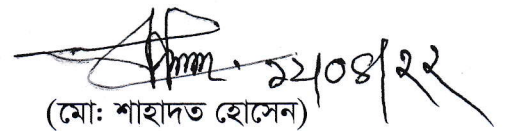 ১২/০৪/২২
(মোঃ শাহাদত হোসেন)